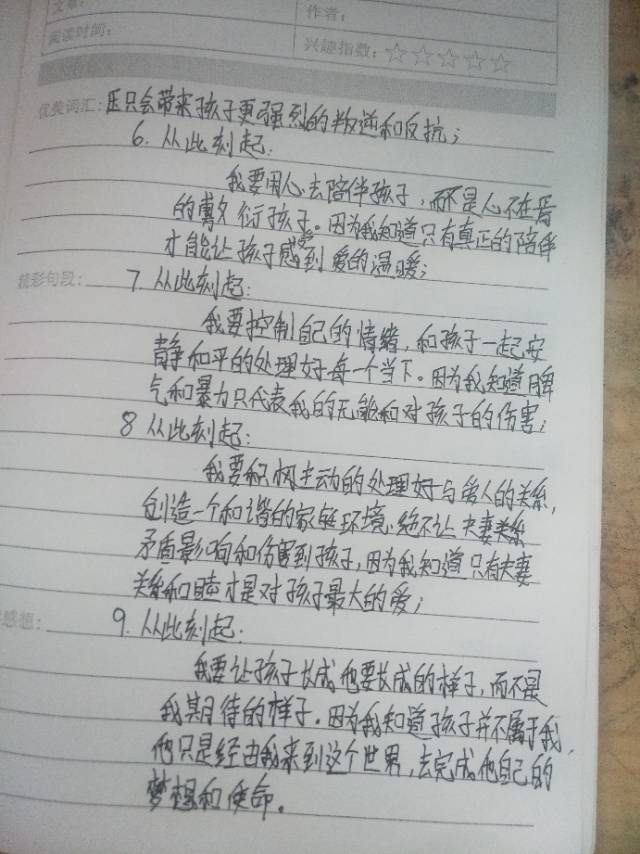 文章:
作者:
阅读时间:
兴趣指数:☆☆☆☆☆
优美词汇:压只会带来孩子更强烈的叛逆和反抗;
6. 从此刻起:
我要用心去陪伴孩子,而不是心不在焉
的敷衍孩子。因为我知道只有真正的陪伴
才能让孩子感到爱的温暖;
精彩句段:
7. 从此刻起:
我要控制自己的情绪,和孩子一起安
静和平的处理好每一个当下。因为我知道脾
气和暴力只代表我的无能和对孩子的伤害;
8 从此刻起:
我要积极主动的处理好与爱人的关系,
创造一个和谐的家庭环境,绝不让夫妻关系
矛盾影响和伤害到孩子,因为我知道只有夫妻
关系和睦才是对孩子最大的爱;
感想:
9. 从此刻起:
我要让孩子长成他要长成的样子,而不是
我期待的样子。因为我知道孩子并不属于我,
他只是经由我来到这个世界,去完成他自己的
梦想和使命。